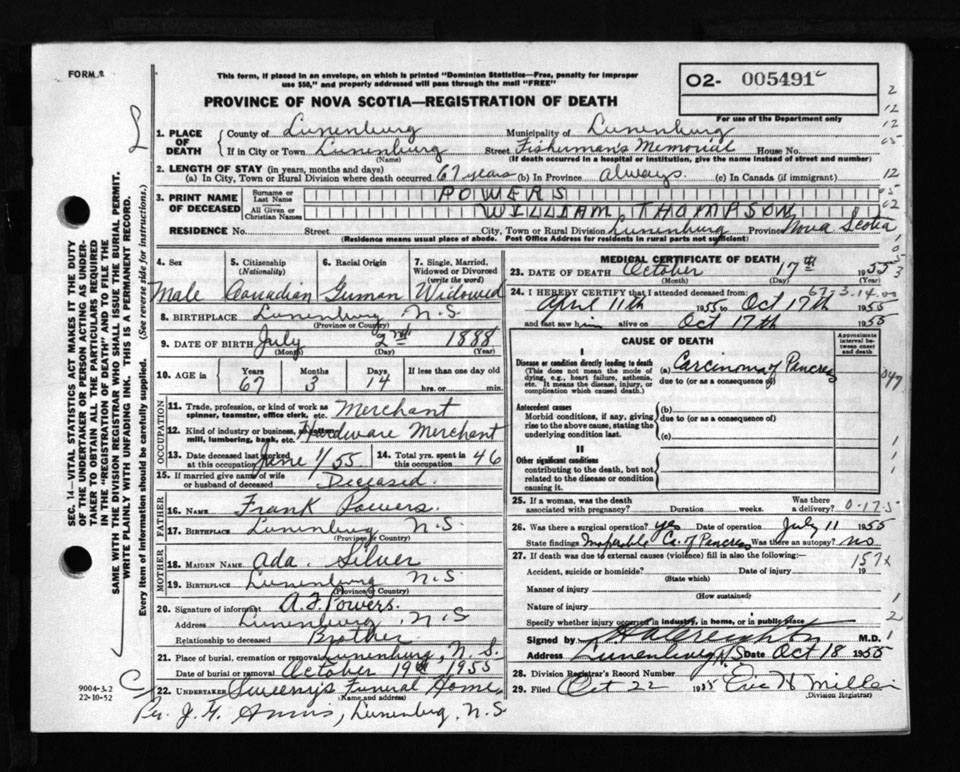 FORM 2
This form, if placed in an envelope, on which is printed "Dominion Statistics—Free, penalty for improper
use $50," and properly addressed will pass through the mail "FREE"
O2- 005491
PROVINCE OF NOVA SCOTIA—REGISTRATION OF DEATH
For use of the Department only
1. PLACE OF DEATH { County of Lunenburg Municipality of Lunenburg
If in City or Town Lunenburg Street Fisherman's Memorial House No.
(Name) (If death occurred in a hospital or institution, give the name instead of street and number)
2. LENGTH OF STAY (in years, months and days)
(a) In City, Town or Rural Division where death occurred 67 years (b) In Province always. (c) In Canada (if immigrant)
3. PRINT NAME OF DECEASED { Surname or Last Name POWERS
All Given or Christian Names WILLIAM, THOMPSON
RESIDENCE No. Street City, Town or Rural Division Lunenburg Province Nova Scotia
(Residence means usual place of abode. Post Office Address for residents in rural parts not sufficient)
4. Sex 5. Citizenship (Nationality) 6. Racial Origin 7. Single, Married, Widowed or Divorced (write the word)
Male Canadian German Widowed
8. BIRTHPLACE Lunenburg N.S.
(Province or Country)
9. DATE OF BIRTH July 2nd 1888
(Month) (Day) (Year)
10. AGE in { Years Months Days If less than one day old
67 3 14 hrs. or min.
OCCUPATION
11. Trade, profession, or kind of work as spinner, teamster, office clerk, etc. Merchant
12. Kind of industry or business, mill, lumbering, bank, etc. Hardware Merchant
13. Date deceased last worked at this occupation June 1/55 14. Total yrs. spent in this occupation 46
15. If married give name of wife or husband of deceased Deceased.
FATHER
16. NAME Frank Powers.
17. BIRTHPLACE Lunenburg N.S.
(Province or Country)
MOTHER
18. MAIDEN NAME Ada Silver
19. BIRTHPLACE Lunenburg N.S.
(Province or Country)
20. Signature of informant A.F. Powers.
Address Lunenburg N.S
Relationship to deceased Brother
21. Place of burial, cremation or removal Lunenburg, N.S.
Date of burial or removal October 19th, 1955
22. UNDERTAKER Sweeny's Funeral Home,
(Name and address)
Per. J. G. , Lunenburg, N.S
MEDICAL CERTIFICATE OF DEATH
23. DATE OF DEATH October 17th 1955
(Month) (Day)
67-3-14
24. I HEREBY CERTIFY that I attended deceased from
April 11th 1955 to Oct 17th 1955
and last saw him alive on Oct 17th 1955
CAUSE OF DEATH
Approximate interval between onset and death
I
Disease or condition directly leading to death
(This does not mean the mode of dying, e.g., heart failure, asthenia, etc. It means the disease, injury, or complication which caused death.)
(a) Carcinoma of Pancreas
due to (or as a consequence of)
Antecedent causes
Morbid conditions, if any, giving rise to the above cause, stating the underlying condition last.
(b)
due to (or as a consequence of)
(c)
II
Other significant conditions contributing to the death, but not related to the disease or condition causing it.
25. If a woman, was the death associated with pregnancy? Duration weeks. Was there a delivery?
26. Was there a surgical operation? yes Date of operation July 11 1955
State findings Inoperable Ca. of Pancreas Was there an autopsy? no
27. If death was due to external causes (violence) fill in also the following:—
157x
Accident, suicide or homicide? Date of injury 19
(State which)
Manner of injury
(How sustained)
Nature of injury
Specify whether injury occurred in industry, in home, or in public place
Signed by M.D.
Address Lunenburg N.S Date Oct 18 1955
28. Division Registrar's Record Number
29. Filed Oct 22 1955 Eric H Miller
(Division Registrar)
SEC. 14—VITAL STATISTICS ACT MAKES IT THE DUTY
OF THE UNDERTAKER OR PERSON ACTING AS UNDER-
TAKER TO OBTAIN ALL THE PARTICULARS REQUIRED
IN THE "REGISTRATION OF DEATH" AND TO FILE THE
SAME WITH THE DIVISION REGISTRAR WHO SHALL ISSUE THE BURIAL PERMIT.
WRITE PLAINLY WITH UNFADING INK. THIS IS A PERMANENT RECORD.
Every item of information should be carefully supplied. (See reverse side for instructions.)
9004-3.2
22-10-52
2
12
12
05
12
05
02
047
1
1
1
0-17-5
1
2
1